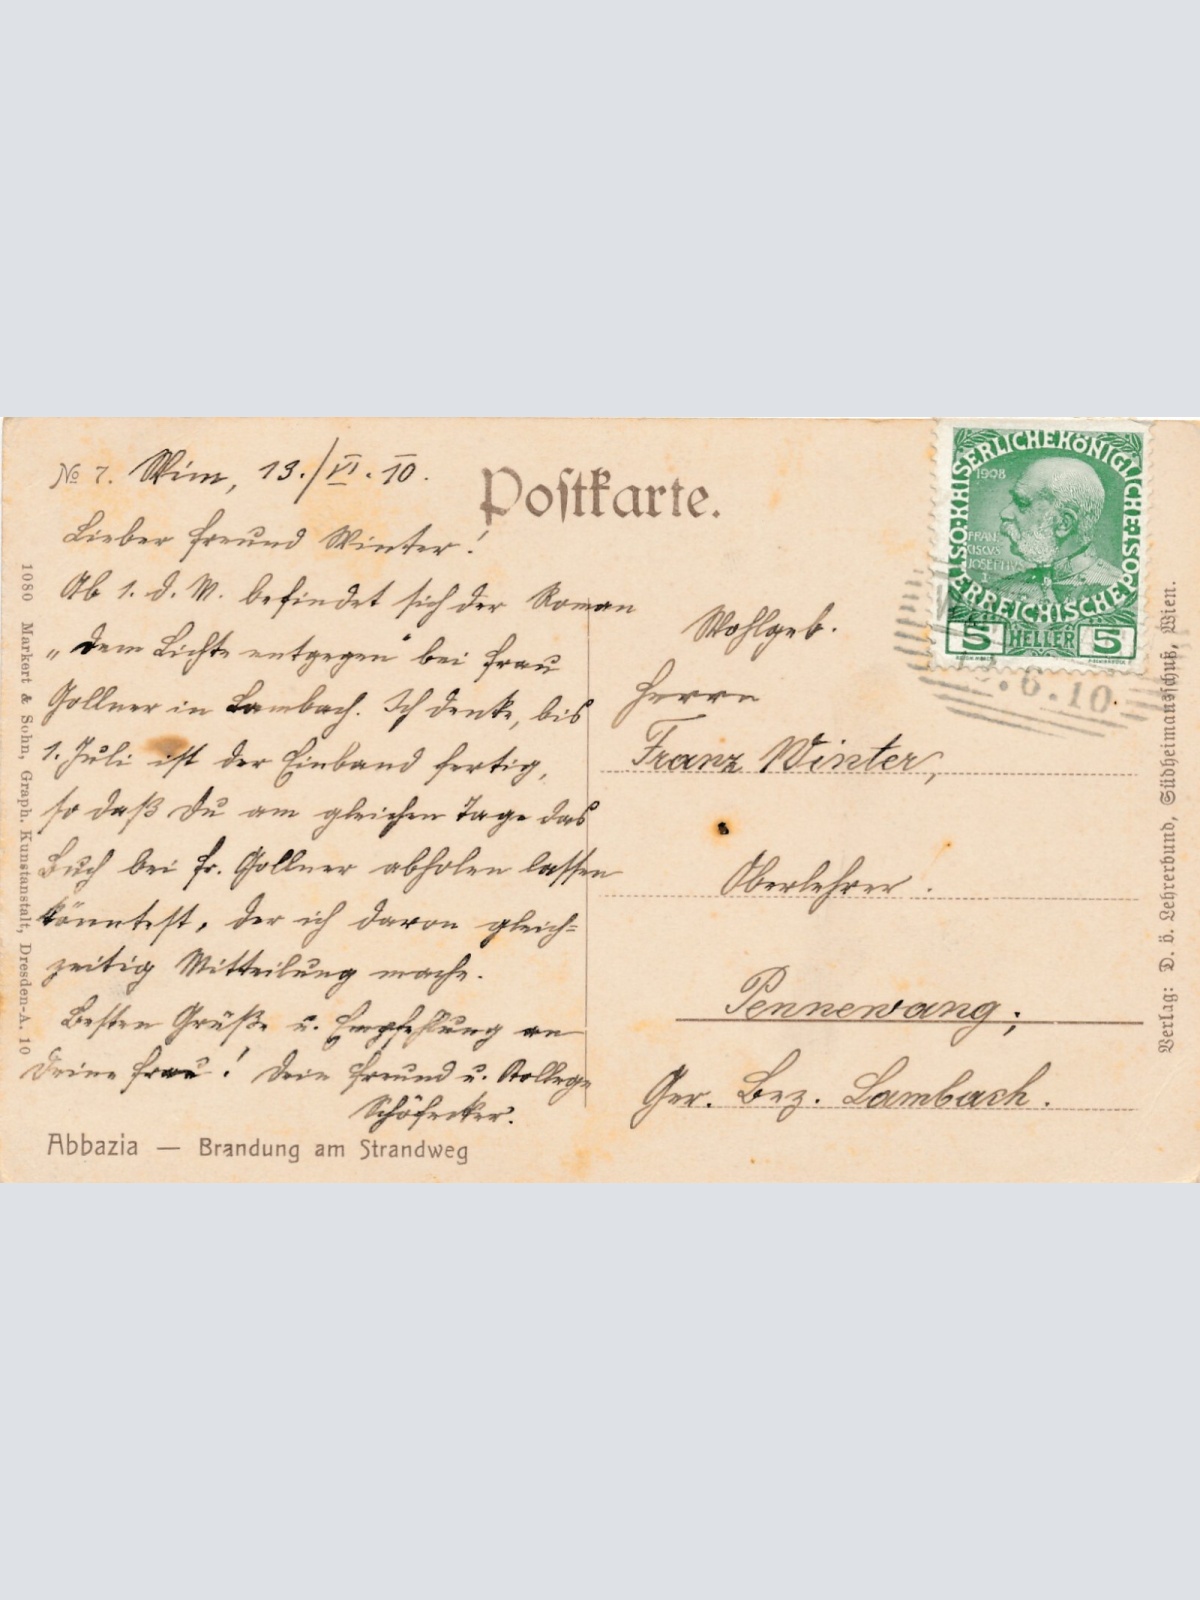 № 7. Wien, 13./VI. 10.
Postkarte.
Lieber Freund Winter!
Ab 1. d. M. befindet sich der Roman
„Dem Lichte entgegen" bei Frau
Gollner in Lambach. Ich denke, bis
1. Juli ist der Einband fertig,
so daß Du am gleichen Tage das
Buch bei Fr. Gollner abholen lassen
könntest, der ich davon gleich=
zeitig Mitteilung mache.
Besten Gruß u. Empfehlung an
Deine Frau! Dein Freund u. Kollege
Abbazia — Brandung am Strandweg
1080 Markert & Sohn, Graph. Kunstanstalt, Dresden-A. 10
Wohlgeb.
Herrn
Franz Winter,
Oberlehrer.
Pennewang;
Ger. Bez. Lambach.
KAISERLICHE KÖNIGLICHE ÖSTERREICHISCHE POST
1908
FRAN
CISCVS
JOSEPHVS
I
5 HELLER 5
.6.10
Verlag: D. ö. Lehrerbund, Südheimausschuß, Wien.